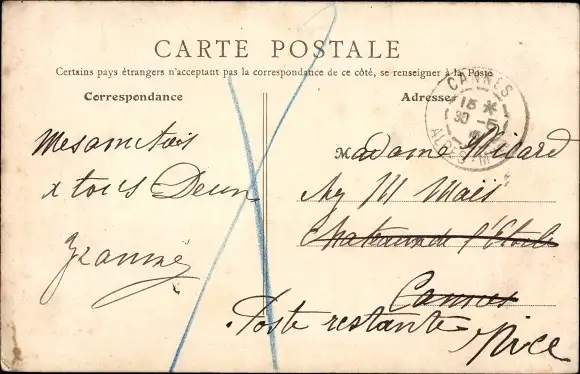 CARTE POSTALE
Certains pays étrangers n'acceptant pas la correspondance de ce côté, se renseigner à la Poste
Correspondance
Adresse
CANNES
15 *
30 -5
ALPES-M
Mes amitiés
à tous Deux
Jeanne
Madame Picard
Chateau de l'Etoile
Cannes
Poste restante Nice